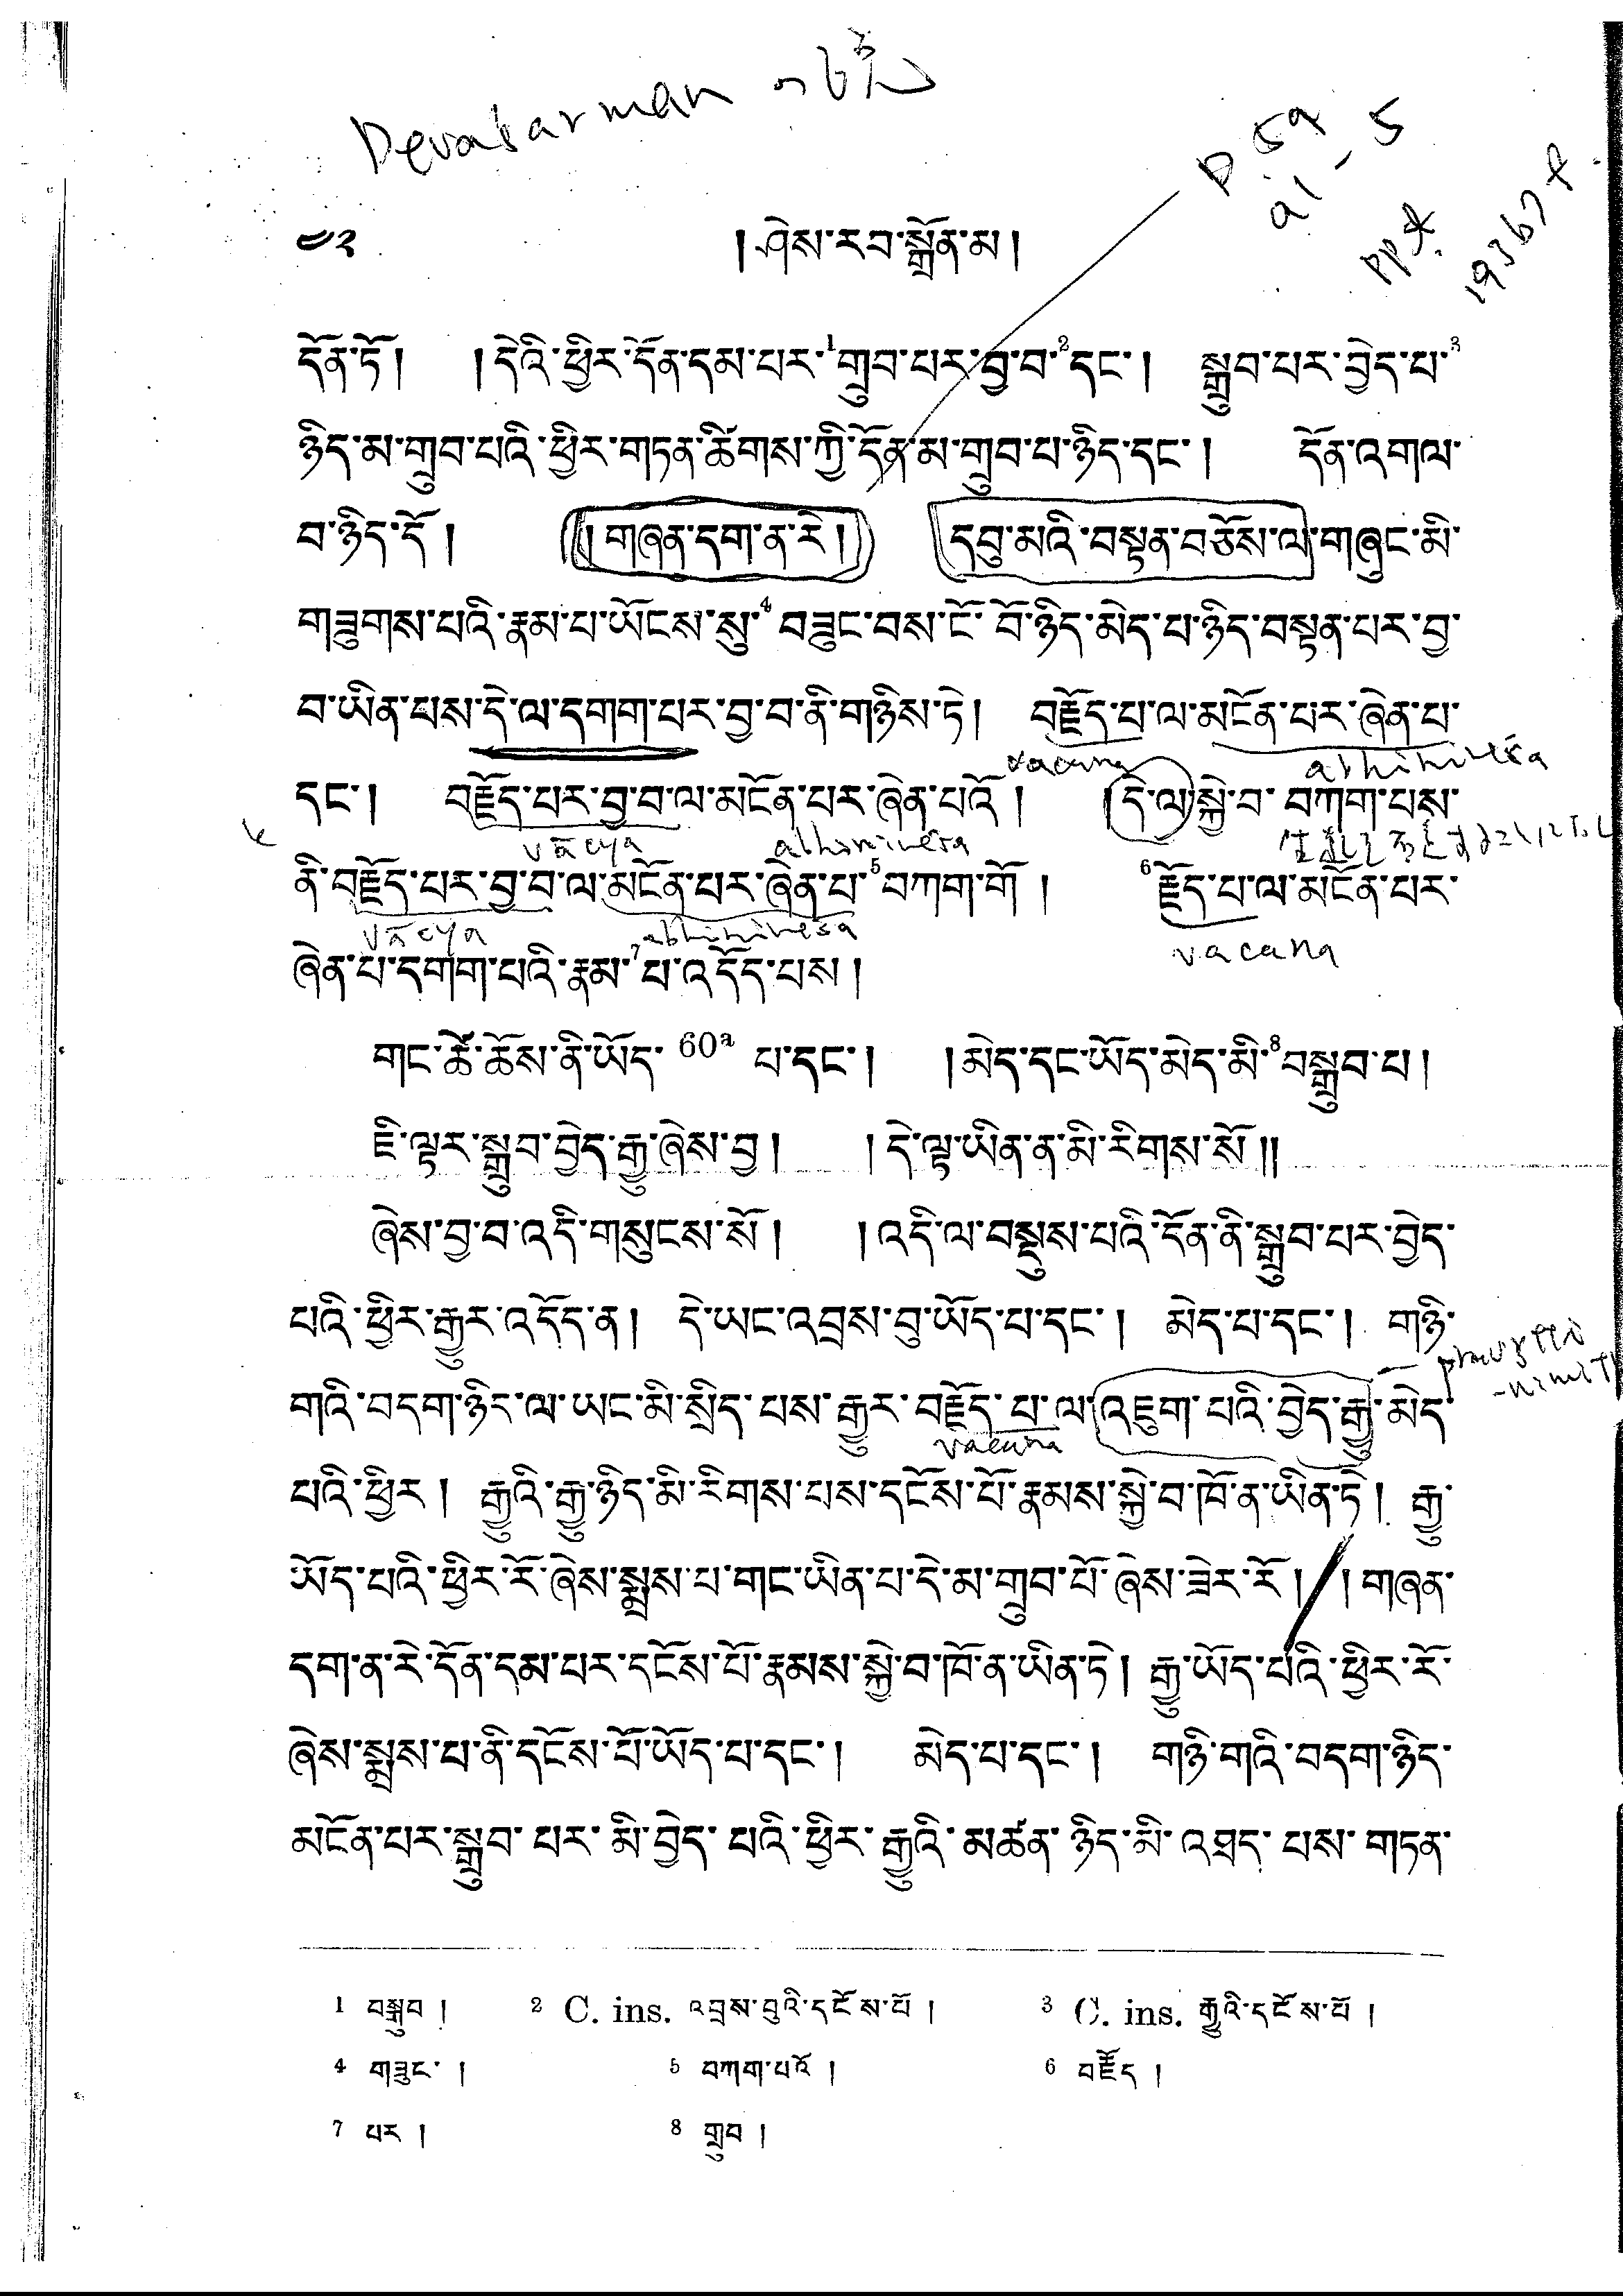 Devaśarman
༧༢ །ཤེས་རབ་སྒྲོན་མ།
དོན་ཏོ། །དེའི་ཕྱིར་དོན་དམ་པར་¹གྲུབ་པར་བྱ་བ་²དང་། སྒྲུབ་པར་བྱེད་པ་³
ཉིད་མ་གྲུབ་པའི་ཕྱིར་གཏན་ཚིགས་ཀྱི་དོན་མ་གྲུབ་པ་ཉིད་དང་། དོན་འགལ་
བ་ཉིད་དོ། །གཞན་དག་ན་རེ། དབུ་མའི་བསྟན་བཅོས་ལ་གཞུང་མི་
གཟུགས་པའི་རྣམ་པ་ཡོངས་སུ་⁴བཟུང་བས་ངོ་བོ་ཉིད་མེད་པ་ཉིད་བསྟན་པར་བྱ་
བ་ཡིན་པས་དེ་ལ་དགག་པར་བྱ་བ་ནི་གཉིས་ཏེ། བརྗོད་པ་ལ་མངོན་པར་ཞེན་པ་
vacana abhiniveśa
དང་། བརྗོད་པར་བྱ་བ་ལ་མངོན་པར་ཞེན་པའོ། །དེ་ལ་སྐྱེ་བ་བཀག་པས་
vācya abhiniveśa
ནི་བརྗོད་པར་བྱ་བ་ལ་མངོན་པར་ཞེན་པ་⁵བཀག་གོ། ⁶རྗོད་པ་ལ་མངོན་པར་
vācya abhiniveśa vacana
ཞེན་པ་དགག་པའི་རྣམ་⁷པ་འདོད་པས།
གང་ཚེ་ཆོས་ནི་ཡོད་ 60ᵃ པ་དང་། །མེད་དང་ཡོད་མེད་མི་⁸བསྒྲུབ་པ།
ཇི་ལྟར་སྒྲུབ་བྱེད་རྒྱུ་ཞེས་བྱ། །དེ་ལྟ་ཡིན་ན་མི་རིགས་སོ།།
ཞེས་བྱ་བ་འདི་གསུངས་སོ། །འདི་ལ་བསྡུས་པའི་དོན་ནི་སྒྲུབ་པར་བྱེད་
པའི་ཕྱིར་རྒྱུར་འདོད་ན། དེ་ཡང་འབྲས་བུ་ཡོད་པ་དང་། མེད་པ་དང་། གཉི་
གའི་བདག་ཉིད་ལ་ཡང་མི་སྲིད་པས་རྒྱུར་བརྗོད་པ་ལ་འཇུག་པའི་བྱེད་རྒྱུ་མེད་
vacana
པའི་ཕྱིར། རྒྱུའི་རྒྱུ་ཉིད་མི་རིགས་པས་དངོས་པོ་རྣམས་སྐྱེ་བ་ཁོ་ན་ཡིན་ཏེ། རྒྱུ་
ཡོད་པའི་ཕྱིར་རོ་ཞེས་སྨྲས་པ་གང་ཡིན་པ་དེ་མ་གྲུབ་པོ་ཞེས་ཟེར་རོ། །གཞན་
དག་ན་རེ་དོན་དམ་པར་དངོས་པོ་རྣམས་སྐྱེ་བ་ཁོ་ན་ཡིན་ཏེ། རྒྱུ་ཡོད་པའི་ཕྱིར་རོ་
ཞེས་སྨྲས་པ་ནི་དངོས་པོ་ཡོད་པ་དང་། མེད་པ་དང་། གཉི་གའི་བདག་ཉིད་
མངོན་པར་སྒྲུབ་པར་མི་བྱེད་པའི་ཕྱིར་རྒྱུའི་མཚན་ཉིད་མི་འཐད་པས་གཏན་
1 བསྒྲུབ། 2 C. ins. འབྲས་བུའི་དངོས་པོ། 3 C. ins. རྒྱུའི་དངོས་པོ།
4 གཟུང་། 5 བཀག་པའོ། 6 བརྗོད།
7 པར། 8 གྲུབ།